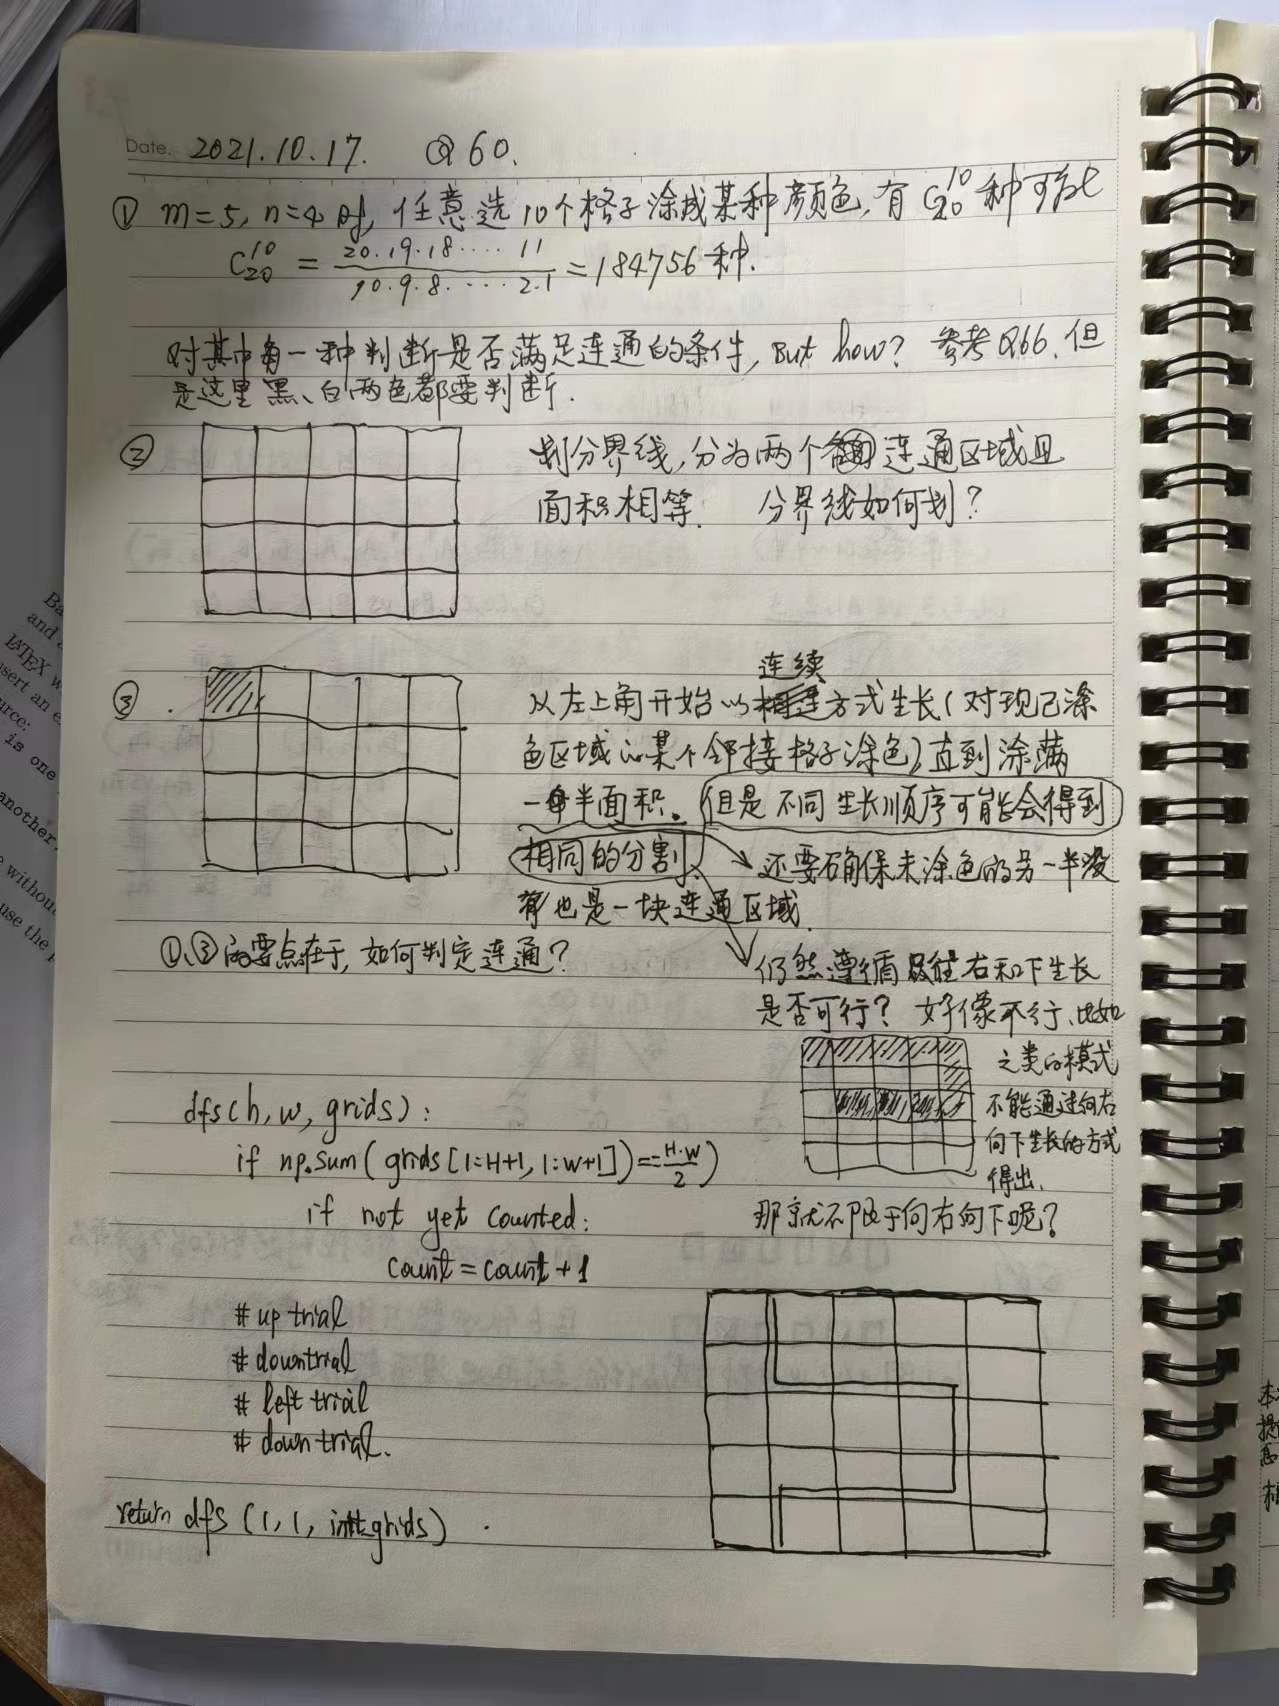 Date. 2021.10.17. Q60.
① m=5, n=4时, 任意选10个格子涂成某种颜色, 有 C₂₀¹⁰ 种可能
C₂₀¹⁰ = 20·19·18····11 / 10·9·8·····2·1 = 184756种.
对其中每一种判断是否满足连通的条件, But how? 参考Q66, 但
是这里黑、白两色都要判断.
② 划分界线, 分为两个 连通区域且
面积相等. 分界线如何划?
连续
③ 从左上角开始以 方式生长(对现已涂
色区域的某个邻接格子涂色)直到涂满
一半面积。但是不同生长顺序可能会得到
相同的分割. 还要确保未涂色的另一半没
有也是一块连通区域.
①、③的要点在于, 如何判定连通?
仍然遵循只往右和下生长
是否可行? 好像不行、比如
之类的模式
不能通过向右
向下生长的方式
得出.
那就不限于向右向下呢?
dfs(h, w, grids):
if np.sum(grids[1:H+1, 1:W+1])==H·W/2)
if not yet counted:
count=count+1
# up trial
# down trial
# left trial
# down trial.
return dfs(1, 1, grids)
Ba
and a
LATEX w
sert an e
urce:
is one
another
without
use the p
本